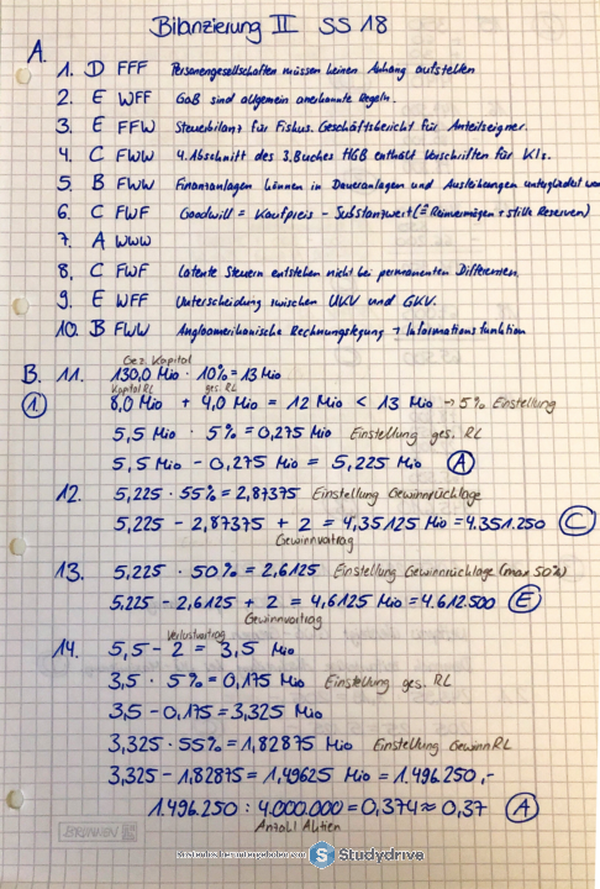 Bilanzierung II SS 18
A.
1. D FFF Personengesellschaften müssen keinen Anhang aufstellen
2. E WFF GoB sind allgemein anerkannte Regeln.
3. E FFW Steuerbilanz für Fiskus. Geschäftsbericht für Anteilseigner.
4. C FWW 4. Abschnitt des 3. Buches HGB enthält Vorschriften für KIs.
5. B FWW Finanzanlagen können in Daueranlagen und Ausleihungen untergliedert
6. C FWF Goodwill = Kaufpreis - Substanzwert (= Reinvermögen + stille Reserven)
7. A WWW
8. C FWF Latente Steuern entstehen nicht bei permanenten Differenzen.
9. E WFF Unterscheidung zwischen UKV und GKV.
10. B FWW Angloamerikanische Rechnungslegung → Informationsfunktion
Gez. Kapital
B. 11. 130,0 Mio · 10% = 13 Mio
Kapital RL ges. RL
1. 8,0 Mio + 4,0 Mio = 12 Mio < 13 Mio → 5% Einstellung
5,5 Mio · 5% = 0,275 Mio Einstellung ges. RL
5,5 Mio - 0,275 Mio = 5,225 Mio A
12. 5,225 · 55% = 2,87375 Einstellung Gewinnrücklage
5,225 - 2,87375 + 2 = 4,35125 Mio = 4.351.250 C
Gewinnvortrag
13. 5,225 · 50% = 2,6125 Einstellung Gewinnrücklage (max 50%)
5,225 - 2,6125 + 2 = 4,6125 Mio = 4.612.500 E
Gewinnvortrag
Verlustvortrag
14. 5,5 - 2 = 3,5 Mio
3,5 · 5% = 0,175 Mio Einstellung ges. RL
3,5 - 0,175 = 3,325 Mio
3,325 · 55% = 1,82875 Mio Einstellung Gewinn RL
3,325 - 1,82875 = 1,49625 Mio = 1.496.250,-
1.496.250 : 4.000.000 = 0,374 ≈ 0,37 A
Anzahl Aktien
BRUNNEN
Kostenlos heruntergeladen von S Studydrive